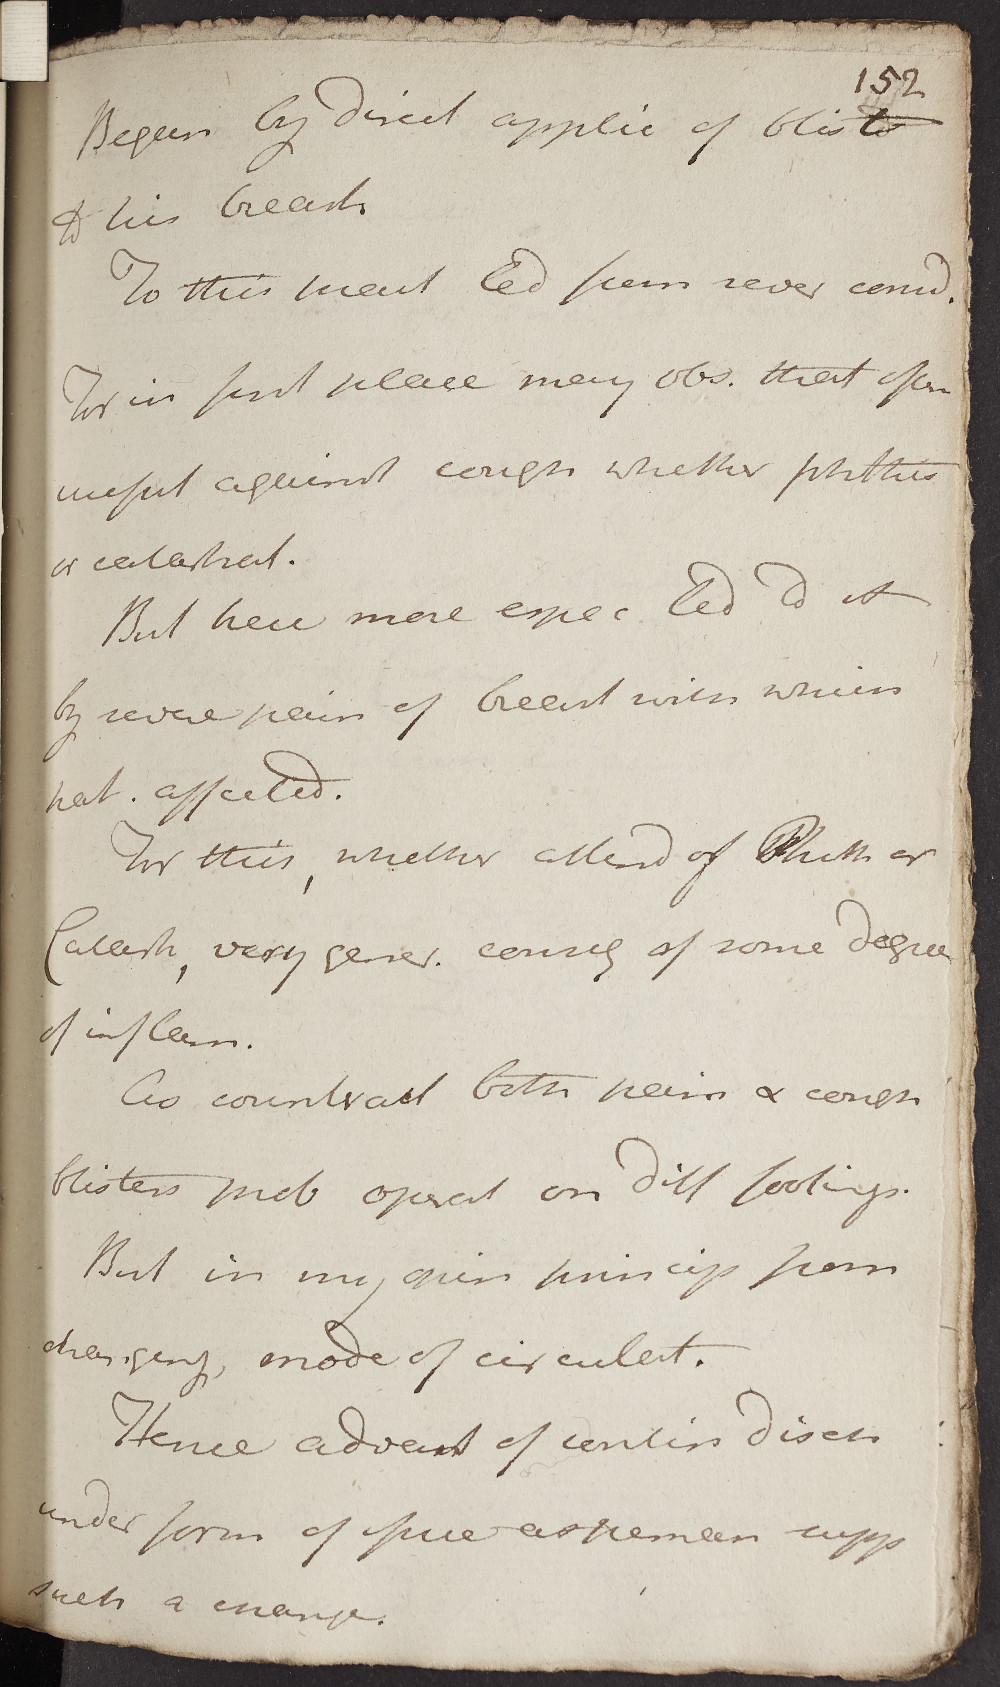 152
Begun by direct applic of blister
to his breast
To this meas led from sever consid.
For in first place may obs. that often
useful against cough whether phthis
or catarrhal.
But here more espec led to it
by severe pain of breast with which
pat. affected.
For this, whether attend of Phth or
Catarrh, very gener. conseq of some degree
of inflam.
As counteract both pain & cough
blisters prob operat on diff footings.
But in my opin princip from
changeng, mode of circulat.
Hence advant of contin disch
under form of issue as permanen supp
such a change.